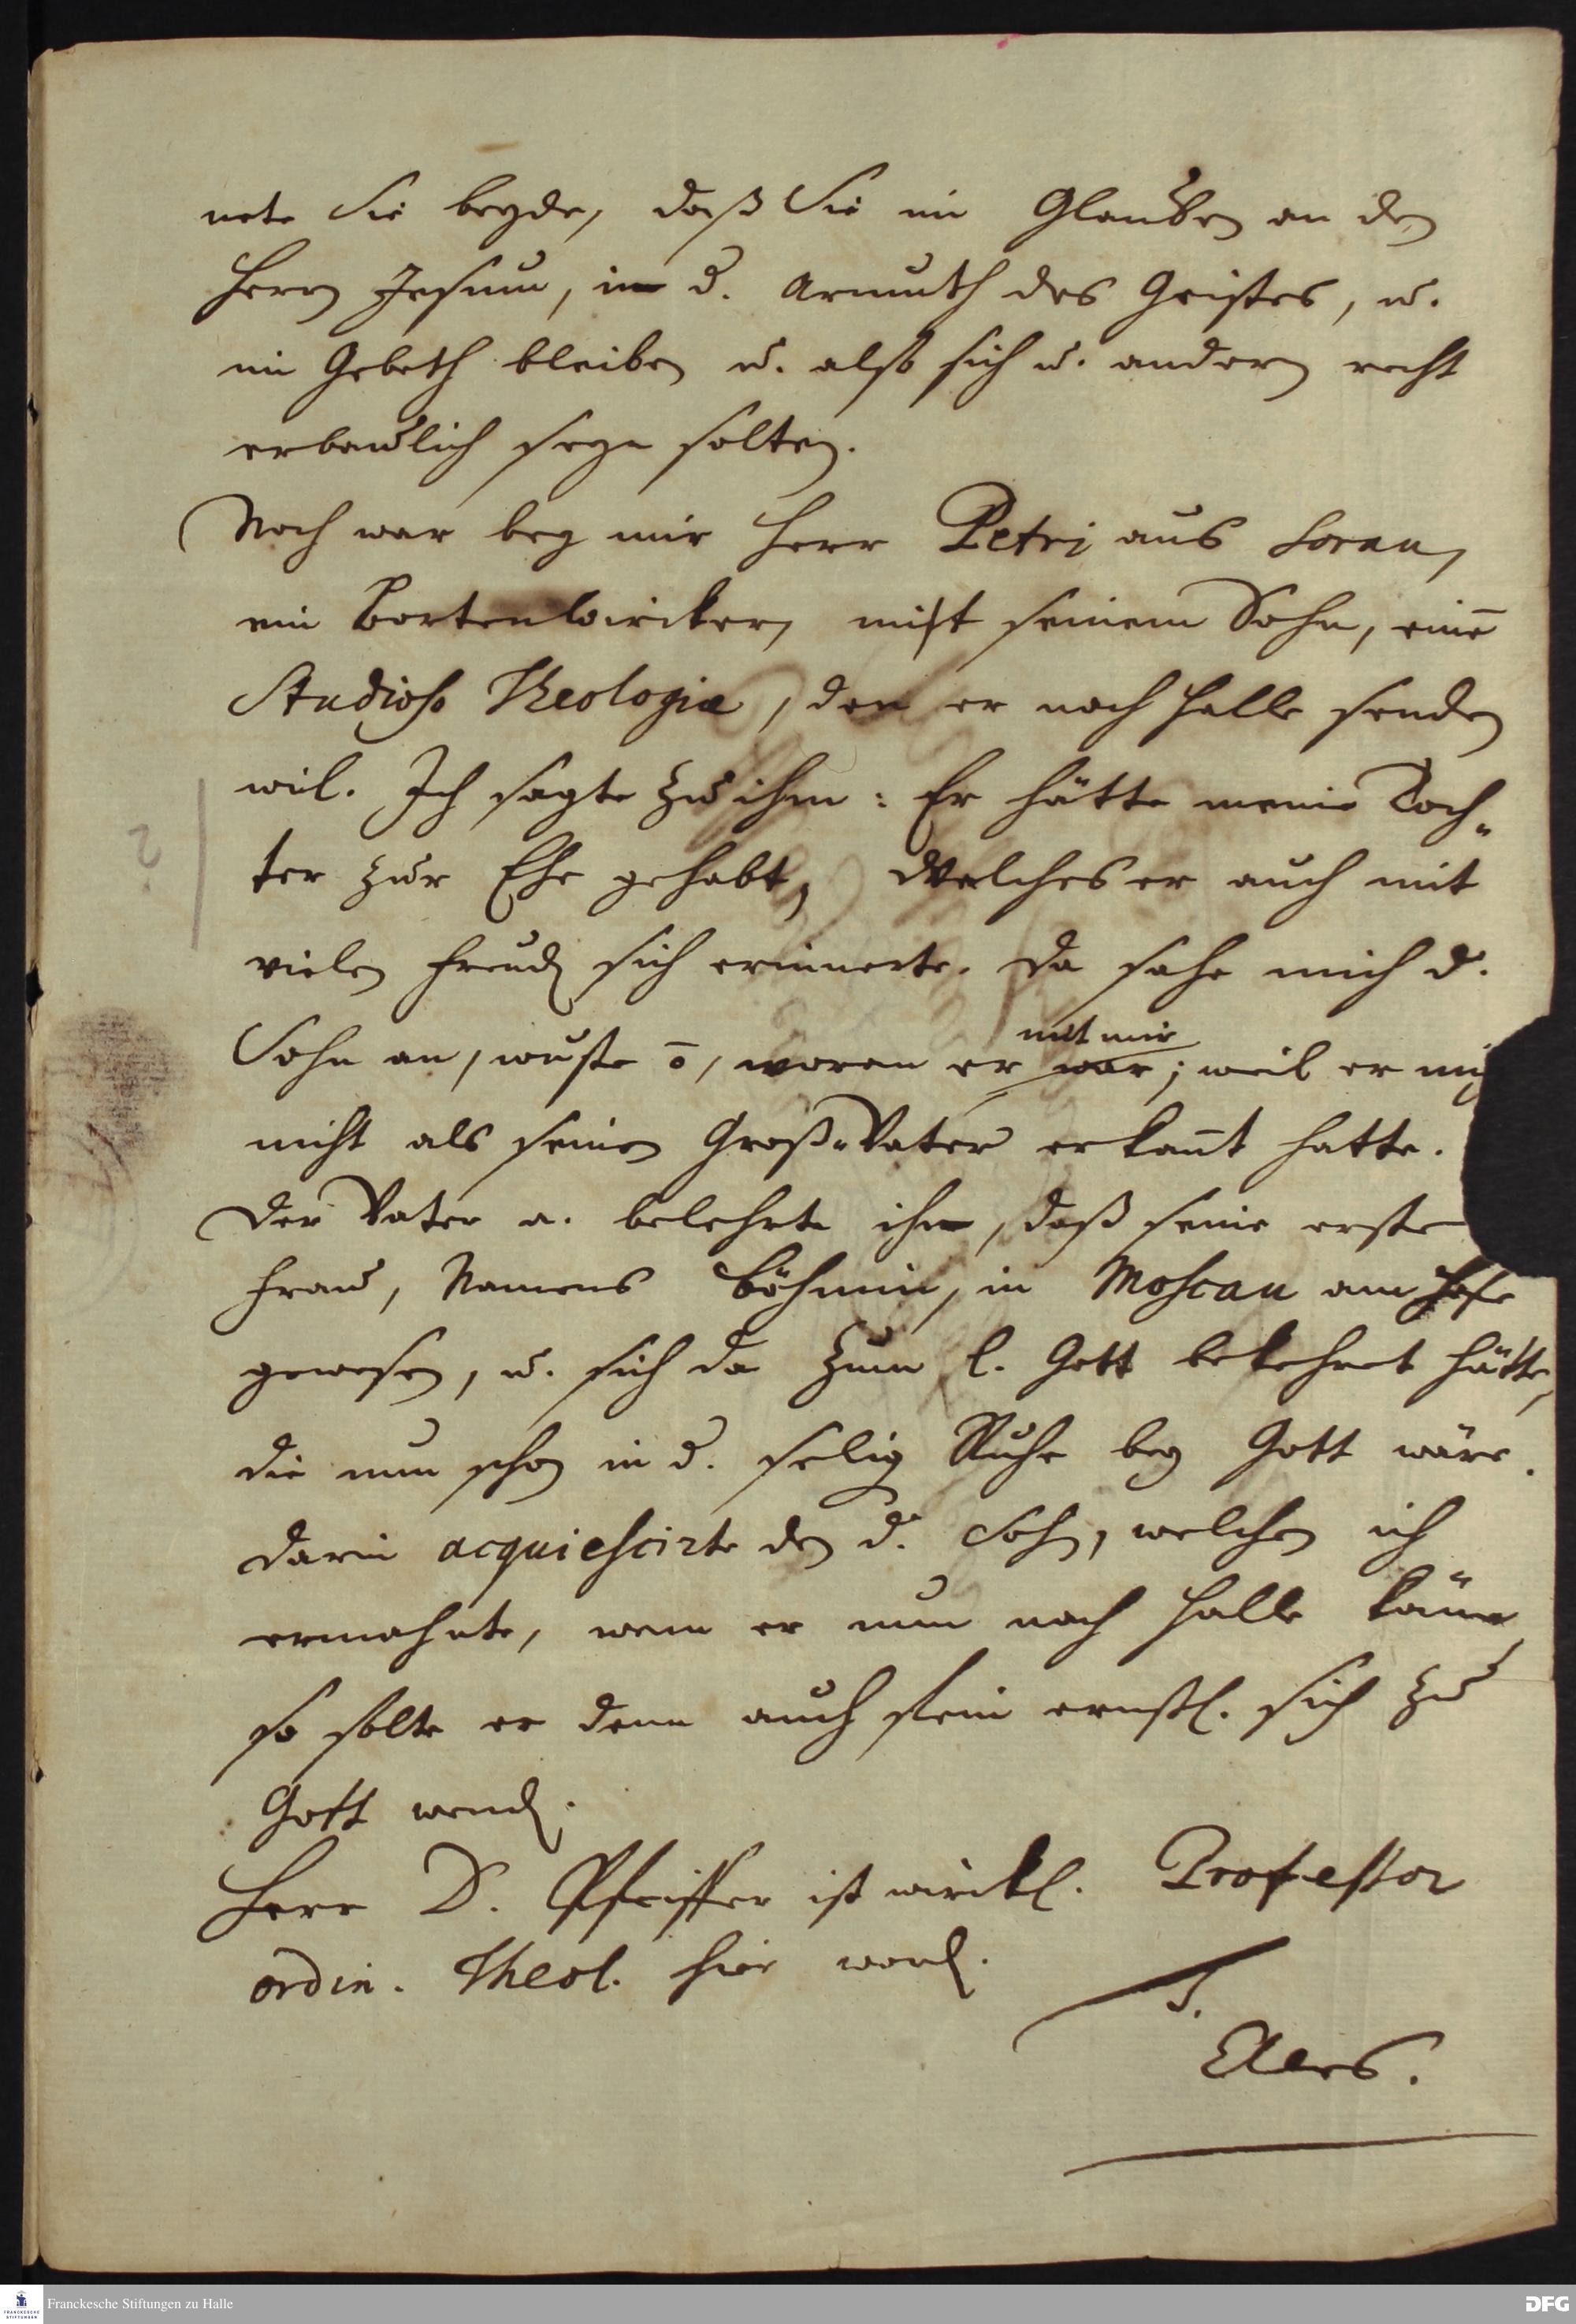 nete Sie beyde, daß Sie im Glauben an den
Herrn Jesum, in d. Armuth des Geistes, u.
im Gebeth bleiben u. also sich u. andern recht
erbaulich seyn solten.
Noch war bey mir Herr Petri aus Sorau,
ein Bortenwircker, mit seinem Sohn, eine̅
Studioso Theologiæ, den er nach Halle senden
wil. Ich sagte zu ihm: Er hätte meine Toch„
ter zur Ehe gehabt, Welches er auch mit
vielen Freud. sich erinnerte. Da sahe mich d.
mit mir
Sohn an, wuste o̅, woran er war; weil er mi
nicht als seinen Groß-Vater erkan̅t hatte.
Der Vater a. belehrte ihn, daß seine erste
Frau, Namens Böhmin, in Moscau am Hofe
gewesen, u. sich da zum l. Gott bekehret hätte,
die nun schon in d. selig Ruhe bey Gott wäre.
Darin acquiescirte den d. Sohn, welchen ich
ermahnte, wenn er nun nach Halle käme,
so solte er denn auch fein ernstl. sich zu
Gott wend.
Herr D. Pfeiffer ist wirckl. Professor
ordin. Theol. hier word.
Elers.
Franckesche Stiftungen zu Halle
DFG